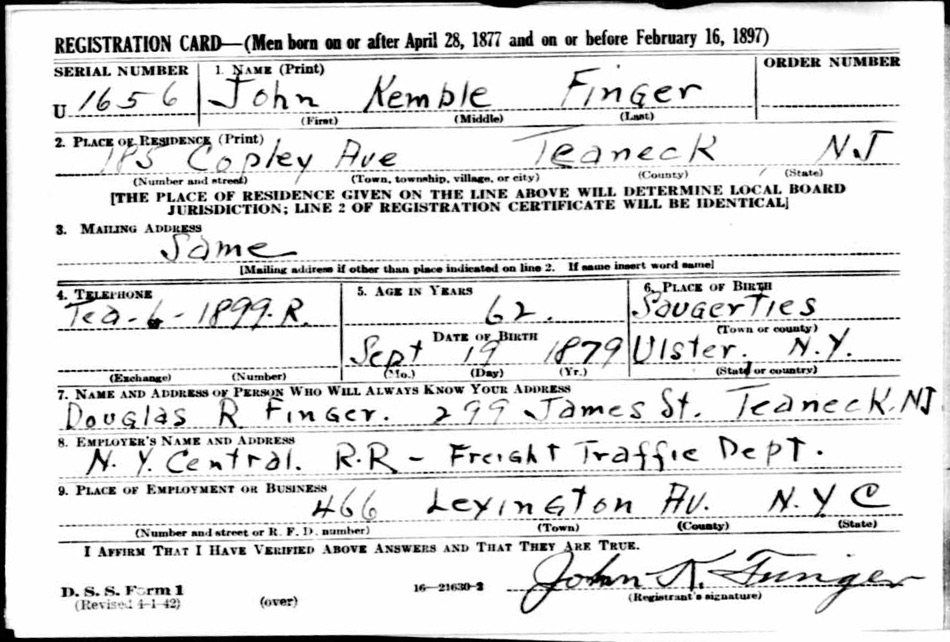 REGISTRATION CARD—(Men born on or after April 28, 1877 and on or before February 16, 1897)
SERIAL NUMBER 1. NAME (Print) ORDER NUMBER
U 1656 John Kemble Finger
(First) (Middle) (Last)
2. PLACE OF RESIDENCE (Print)
185 Copley Ave Teaneck NJ
(Number and street) (Town, township, village, or city) (County) (State)
[THE PLACE OF RESIDENCE GIVEN ON THE LINE ABOVE WILL DETERMINE LOCAL BOARD
JURISDICTION; LINE 2 OF REGISTRATION CERTIFICATE WILL BE IDENTICAL]
3. MAILING ADDRESS
Same
[Mailing address if other than place indicated on line 2. If same insert word same]
4. TELEPHONE 5. AGE IN YEARS 6. PLACE OF BIRTH
Tea-6-1899.R. 62. Saugerties
DATE OF BIRTH (Town or county)
Sept 19 1879 Ulster. N.Y.
(Exchange) (Number) (Mo.) (Day) (Yr.) (State or country)
7. NAME AND ADDRESS OF PERSON WHO WILL ALWAYS KNOW YOUR ADDRESS
Douglas R Finger. 299 James St. Teaneck. NJ
8. EMPLOYER'S NAME AND ADDRESS
N. Y. Central. R.R - Freight Traffic Dept.
9. PLACE OF EMPLOYMENT OR BUSINESS
466 Lexington Av. N.Y C
(Number and street or R. F. D. number) (Town) (County) (State)
I AFFIRM THAT I HAVE VERIFIED ABOVE ANSWERS AND THAT THEY ARE TRUE.
John K. Finger
D. S. S. Form 1 16—21630-2 (Registrant's signature)
(Revised 4-1-42) (over)